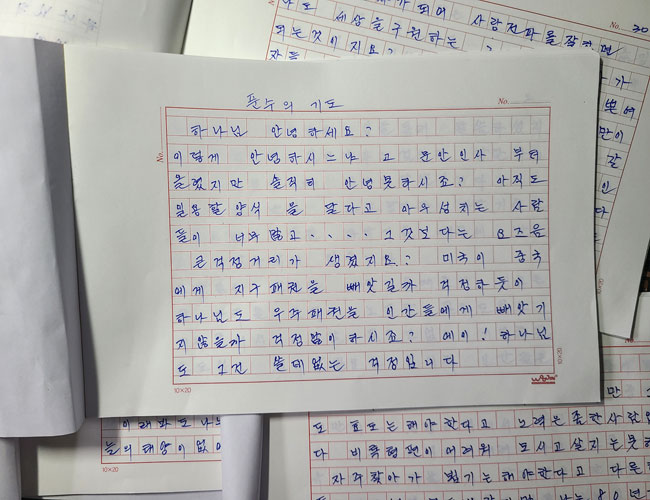 나도 세상을 구원하는
되는 것이 지요?
사랑전파를 잘하면
No. 30
푼수의 기도
No.
하나님 안녕하세요?
No.
이렇게 안녕하시느냐 고 문안인사 부터
올렸지만 솔직히 안녕못하시죠? 아직도
일용할양식 을 달다고 아우성치는 사람
들이 너무 많고 .... 그것보다는 요즈음
큰걱정거리가 생겼지요? 미국이 중국
에게 지구패권을 빼앗길까 걱정하듯이
하나님도 우주패권을 인간들에게 빼앗기
지않을까 걱정많이 하시죠? 에이! 하나님
도 그건 쓸데없는 걱정입니다
10×20
10×20
늘의 태양이 없
10×20
도 효도는 해야한다고 노력은 좀한사람
다 비록형편이 어려워 모시고살지는못
자주찾아가 뵙기는해야한다고 다른